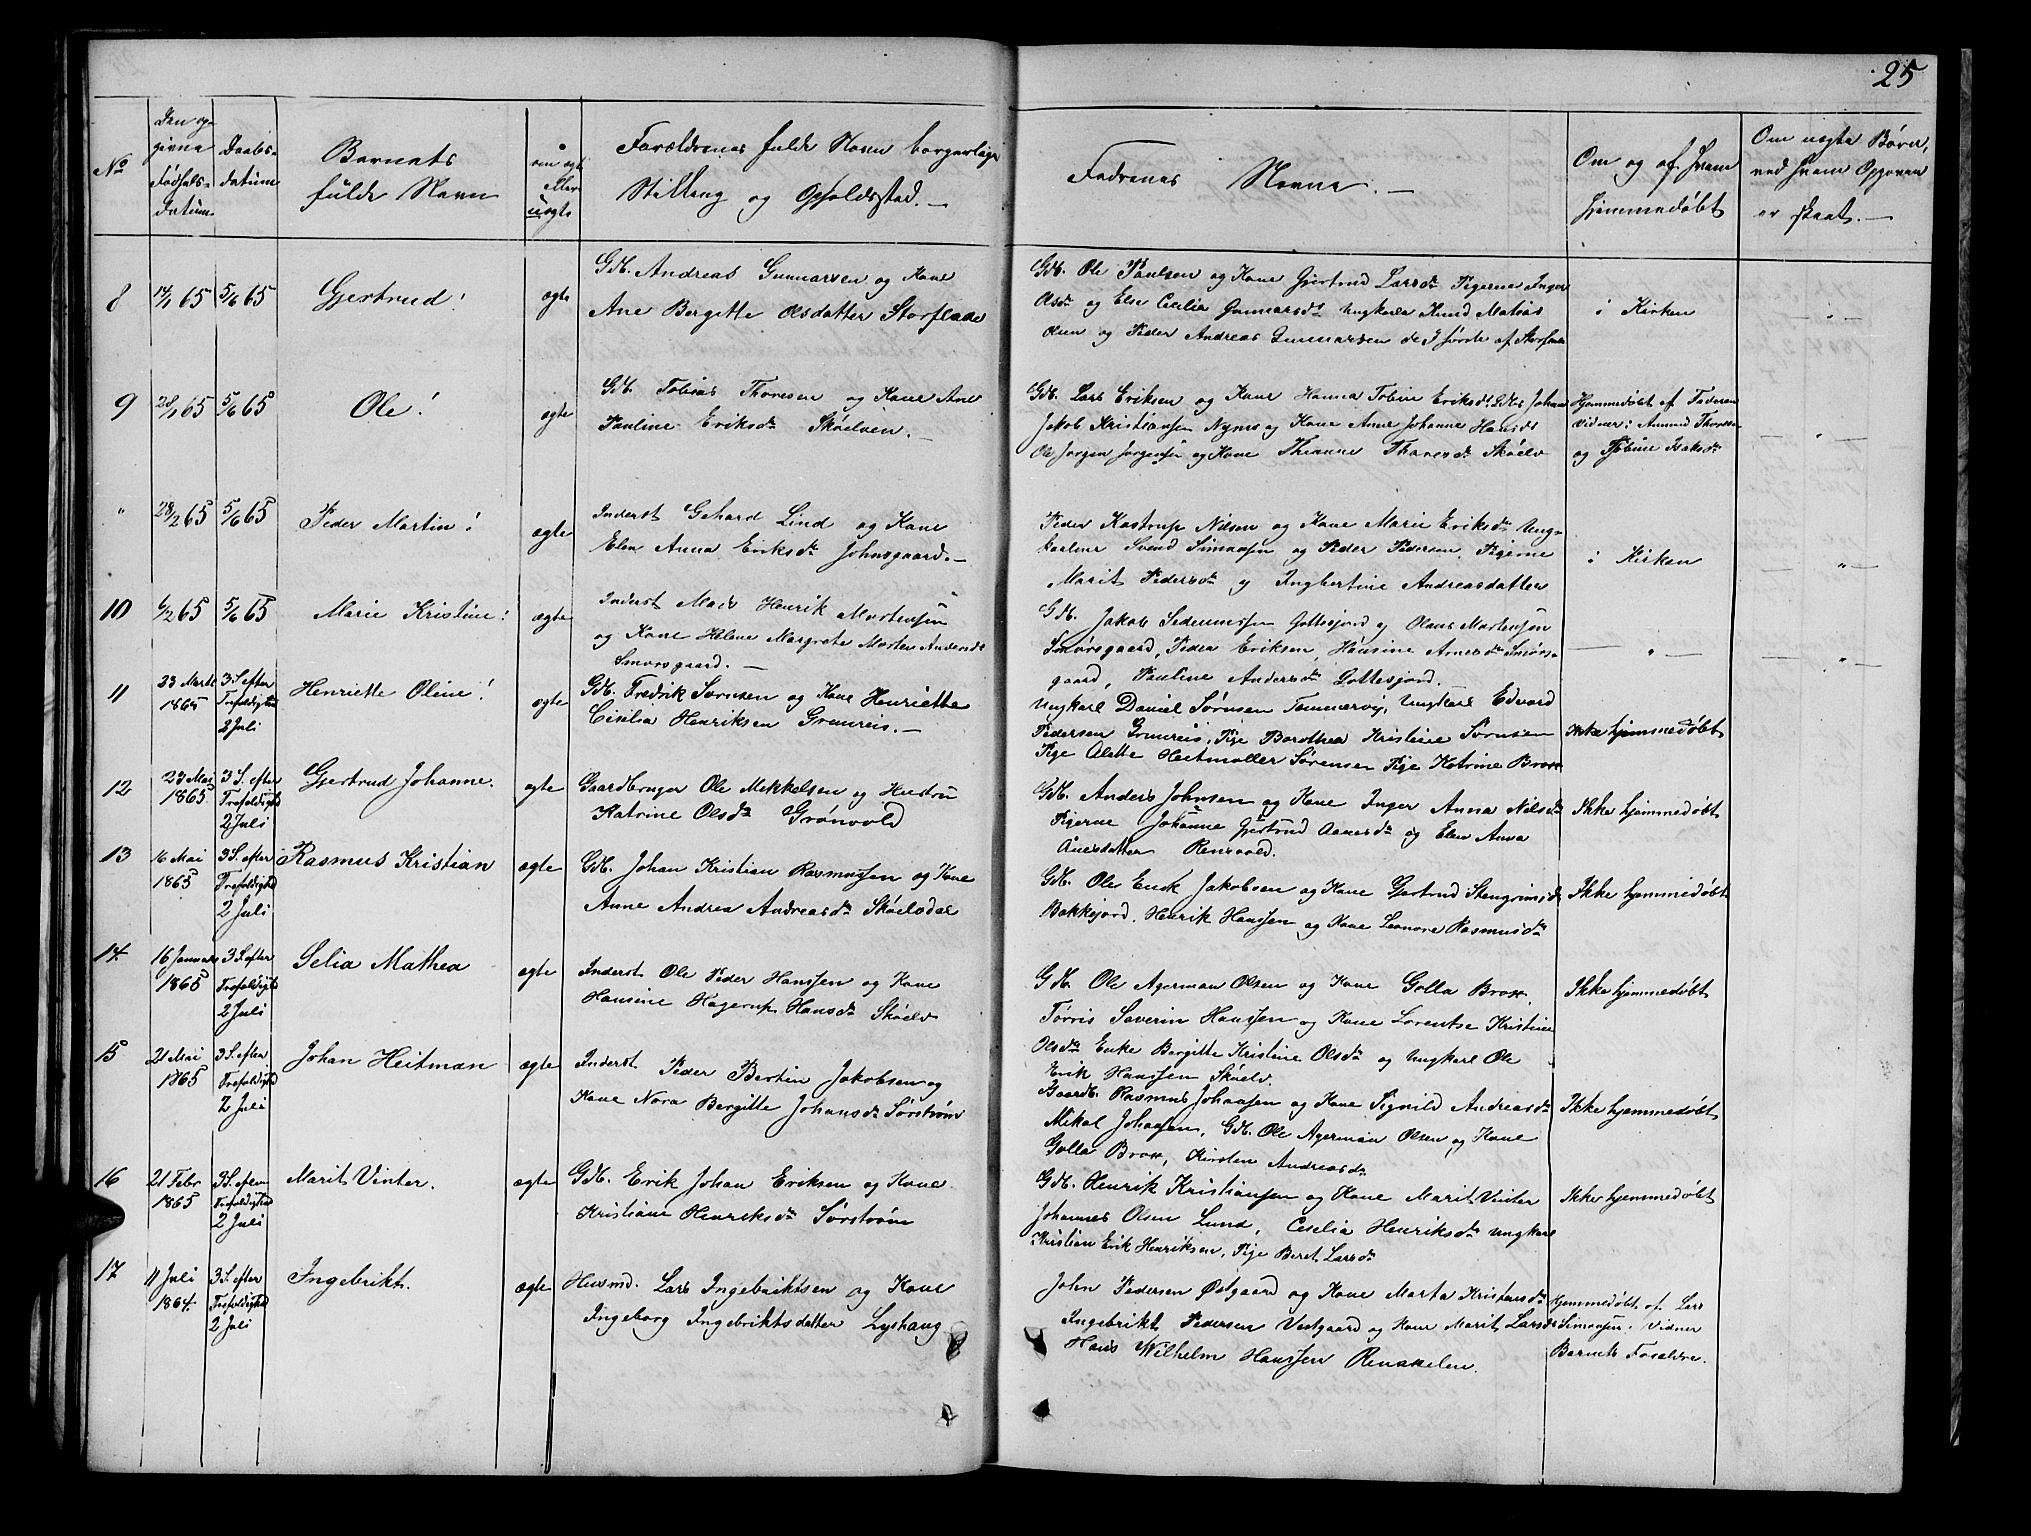 25
No
Den op-
givne
Fødsels-
datum.
Daabs-
datum
Barnets
fulde Navn
om ægte
eller
uægte
Forældrenes fulde Navn borgerlige
Stilling og Opholdssted. —
Faddernes Navne. —
Om og af hvem
hjemmedøbt
Om uægte Børn,
ved hvem Opgaven
er skeet. —
8 14/1 65 5/6 65 Gjertrud! ægte
Gdb. Andreas Gunnarsen og Kone
Ane Bergitte Olsdatter Storflade
Gdb. Ole Paulsen og Kone Gjertrud Larsdr Pigerne Inger
Olsdr og Else Cecilia Gunnarsdr Ungkarle Knud Matias
Olsen og Peder Andreas Gunnarsen de 3 første af
i Kirken
9 28/1 65 5/6 65 Ole! ægte
Gdb. Tobias Thoresen og Kone Ane
Pauline Eriksdr Skøelven. —
Gdb. Lars Eriksen og Kone Hanna Tobine Eriksdr, Johan
Jakob Kristiansen og Kone Anne Johanne Hansdr
Ole Jørgen Jørgensen og Kone Thoresdr Skøelv
Hjemmedøbt af Faderen
Vidner: Amund Thorese
og Isaksdr
" 28/2 65 5/6 65 Peder Martin! ægte
Inderst Gehard Lind og Kone
Elen Anna Eriksdr Johnsgaard. —
Peder Kastrup Nilsen og Kone Marie Eriksdr Ung-
karlene Svend Simonsen og Peder Pedersen. Pigerne
Marit Pedersdr og Ingbertine Andreasdatter
i Kirken
10 6/2 65 5/6 65 Marie Kristine! ægte
Inderst Mads Henrik Mortensen
og Kone Helene Margrete Andersdr
Smørsgaard. —
Gdb. Jakob Gottesjord og Olaus Mortensen
Smørsgaard, Peder Eriksen, Hansine Arnesdr Smørs-
gaard, Pauline Andersdr Gottesjord.
11 23 Marts 1865 3 S. efter Trefoldighed 2 Juli Henriette Oline! ægte
Gdb. Fredrik Sørensen og Kone Henriette
Cisilia Henriksen Grunreis. —
Ungkarl Daniel Sørnsen Tømmervig, Ungkarl Edvard
Pedersen Grunreis, Pige Dorothea Kristine Sørnsen
Pige Alette Heitmøller Sørensen Pige Katrine Brox
Ikke hjemmedøbt
12 23 Mai 1865 3 S. efter Trefoldigh 2 Juli Gjertrud Johanne. ægte
Gaardbruger Ole Mikkelsen og Hustru
Katrine Olsdr Grønvold
Gdb. Anders Johnsen og Kone Inger Anna Nilsdr
Pigerne Johanne Gjertrud Aanesdr og Elen Anna
Aanesdatter Rensvold.
Ikke hjemmedøbt
13 16 Mai 1865 3 S. efter Trefoldighed 2 Juli Rasmus Kristian ægte
Gdb. Johan Kristian Rasmussen og Kone
Anne Andrea Andreasdr Skøelvdal
Gdb. Ole Enok Jakobsen og Kone Gjertrud Stengrimsdr
Bakkejord. Henrik Hanssen og Kone Leonore Rasmusdr
Ikke hjemmedøbt
14. 16 Januar 1865 3 S. efter Trefoldigh 2 Juli Selia Mathea ægte
Inderst Ole Peder Hanssen og Kone
Hansine Hagerup Hansdr Skøelv
Gdb. Ole Agerman Olsen og Kone Golla Brox,
Tørris Saverin Hanssen og Kone Lorentse Kristine
Olsdr Enke Bergitte Kristine Olsdr og Ungkarl Ole
Erik Hanssen Skøelv.
Ikke hjemmedøbt
15 21 Mai 1865 3 S. efter Trefoldighed 2 Juli Johan Heitman ægte
Inderst Peder Bertin Jakobsen og
Kone Nora Bergitte Johansdr Sørstrøm
Gaardb. Rasmus Johansen og Kone Signild Andreasdr
Mikal Johansen, Gdb. Ole Agerman Olsen og Kone
Golla Brox, Kirsten Andreasdr
Ikke hjemmedøbt
16 21 Febr 1865 3 S. efter Trefoldighed 2 Juli Marit Vinter. ægte
Gdb. Erik Johan Eriksen og Kone
Kristiane Henriksdr Sørstrøm
Gdb. Henrik Kristiansen og Kone Marit Vinter
Johannes Olsen Lund, Ceselia Henriksdr Ungkarl
Kristian Erik Henriksen, Pige Beret Larsdr
Ikke hjemmedøbt
17 11 Juli 1864. 3 S. efter Trefoldighed 2 Juli Ingebrikt. ægte
Husmd. Lars Ingebriktsen og Kone
Ingeborg Ingebriktsdatter Lyshaug
John Pedersen Østgaard og Kone Marta Kristensdr
Ingebrikt Pedersen Vestgaard og Kone Marit Larsdr
Hans Wilhelm Hanssen Renskelen.
Hjemmedøbt af Lars
Simonsen. Vidner
Barnets Forældre.